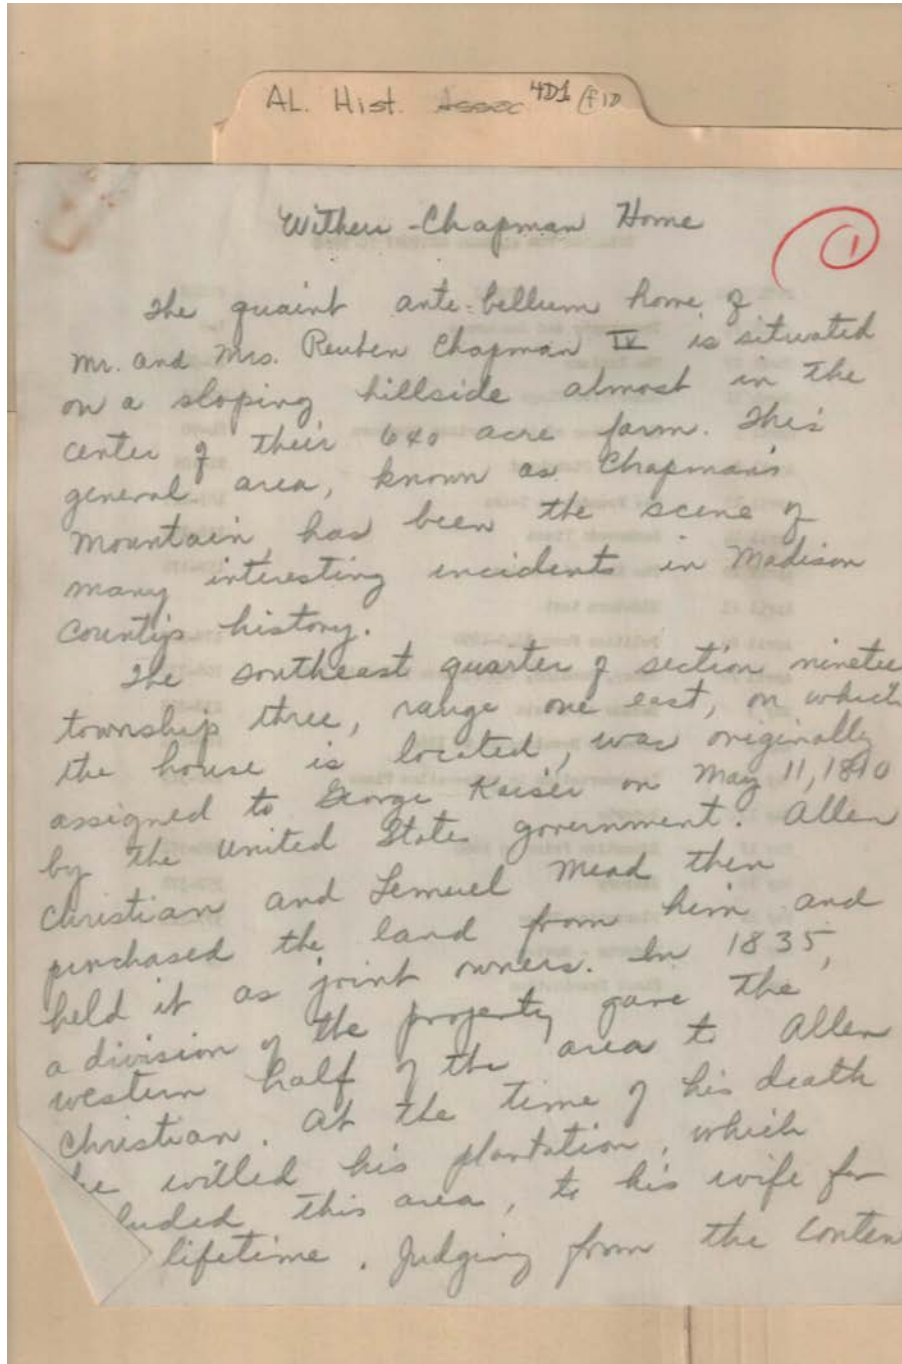 AL. Hist. Assoc 4D1 F10
Withers-Chapman Home
1
The quaint ante-bellum home of
Mr. and Mrs. Reuben Chapman IV is situated
on a sloping hillside almost in the
center of their 640 acre farm. This
general area, known as Chapman's
Mountain, has been the scene of
many interesting incidents in Madison
County's history.
The southeast quarter of section ninetee
township three, range one east, on which
the house is located, was originally
assigned to George Kaiser on May 11, 1810
by the United State government. Allen
Christian and Lemuel Mead then
purchased the land from him and
held it as joint owners. In 1835,
a division of the property gave the
western half of the area to Allen
Christian. At the time of his death
he willed his plantation, which
luded this area, to his wife for
lifetime. Judging from the conten